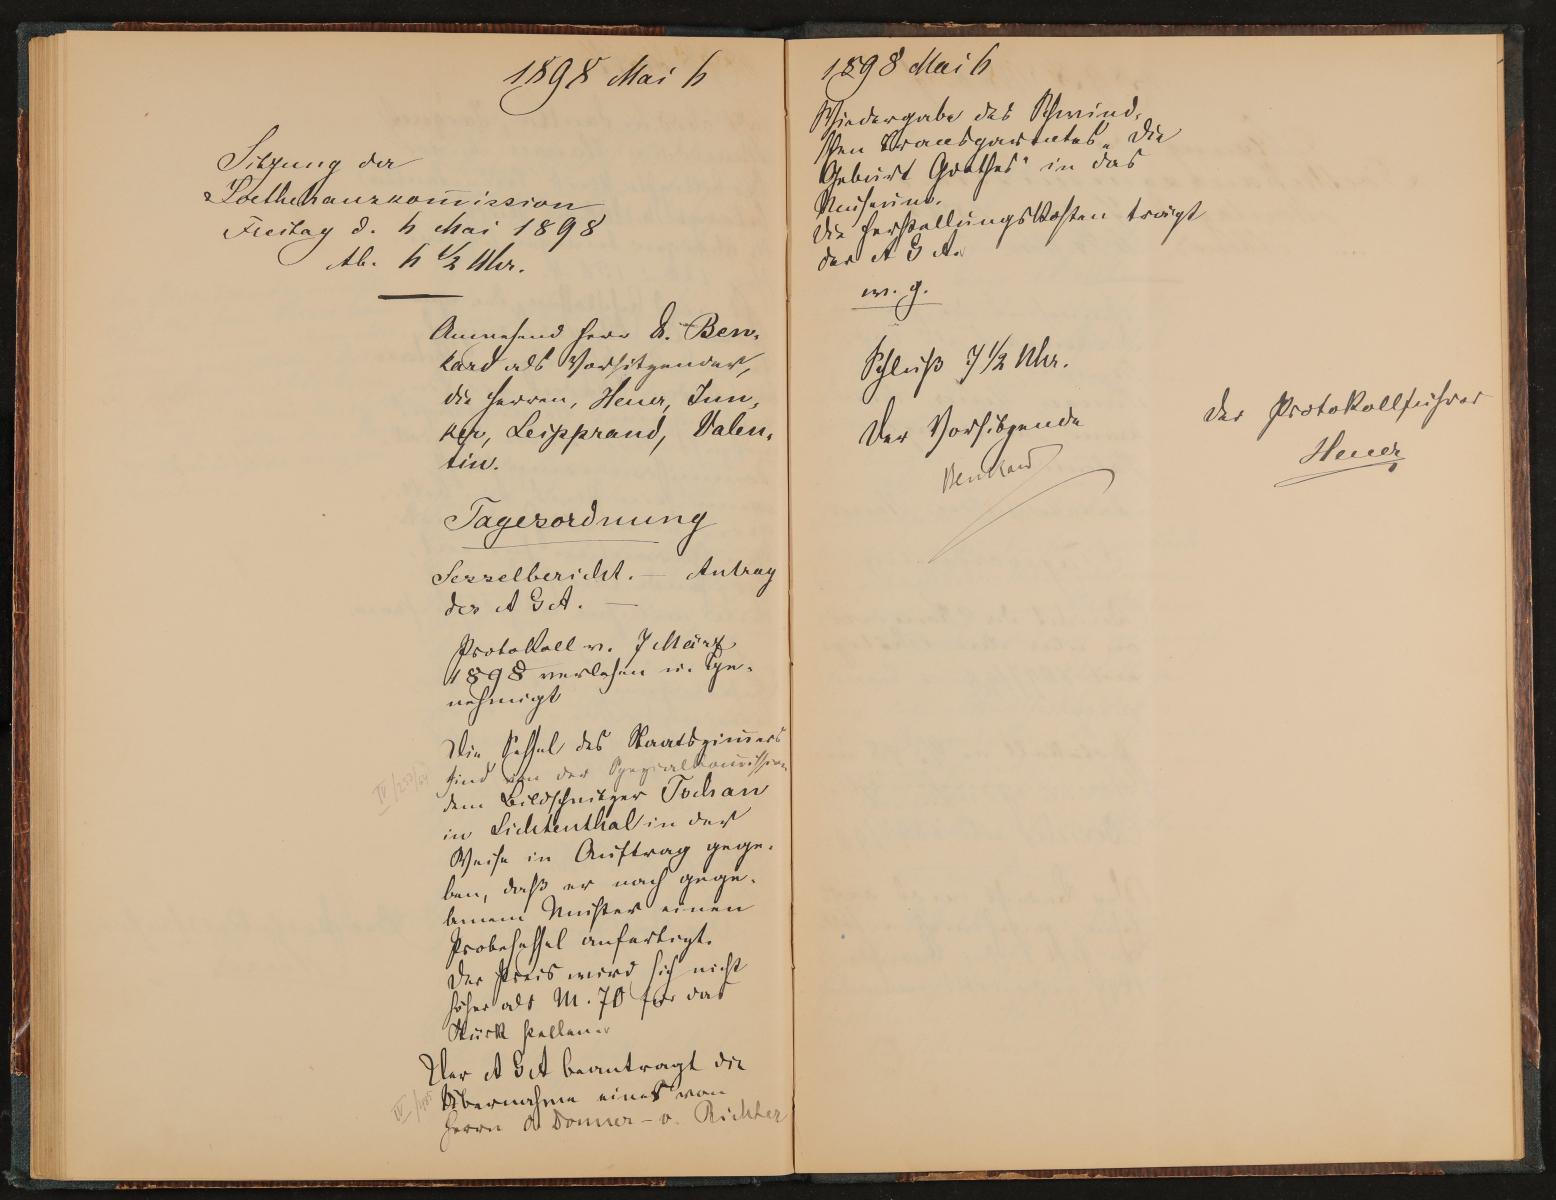 1898 Mai 6
Sitzung der
Goethehauskom̅ission
Freitag d. 6 Mai 1898
Ab. 6 1/2 Uhr.
Anwesend Herr E. Ben-
kard als Vorsitzender,
die Herren, Heuer, Jun-
ker, Leipprand, Valen-
tin.
Tagesordnung
Sesselbericht. — Antrag
des A G A. —
Protokoll v. 7 März
1898 verlesen u. ge-
nehmigt
Die Sessel des Staatszim̅ers
sind von der Spezialkom̅ission
IV/253/64
dem Bildschnitzer Tschan
in Lichtenthal in der
Weise in Auftrag gege-
ben, daß er nach gege-
benem Muster einen
Probesessel anfertigt.
Der Preis wird sich nicht
höher als M. 70 für das
Stück stellen.
Der A G A beantragt die
Übernahme einer von
IV/485
Herrn O Donner-v. Richter
1898 Mai 6
Wiedergabe des Schwind-
schen Transparentes „Die
Geburt Goethes" in das
Museum.
Die Herstellungskosten trägt
der A G A.
w. g.
Schluß 7 1/2 Uhr.
Der Vorsitzende
Benkard
Der Protokollführer
Heuer